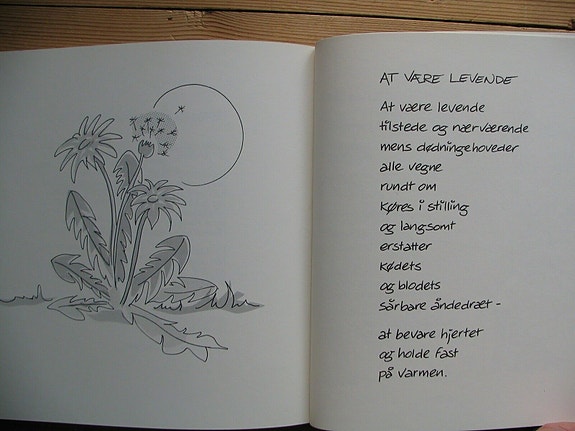 AT VÆRE LEVENDE
At være levende
tilstede og nærværende
mens dødningehoveder
alle vegne
rundt om
køres i stilling
og langsomt
erstatter
kødets
og blodets
sårbare åndedræt -
at bevare hjertet
og holde fast
på varmen.